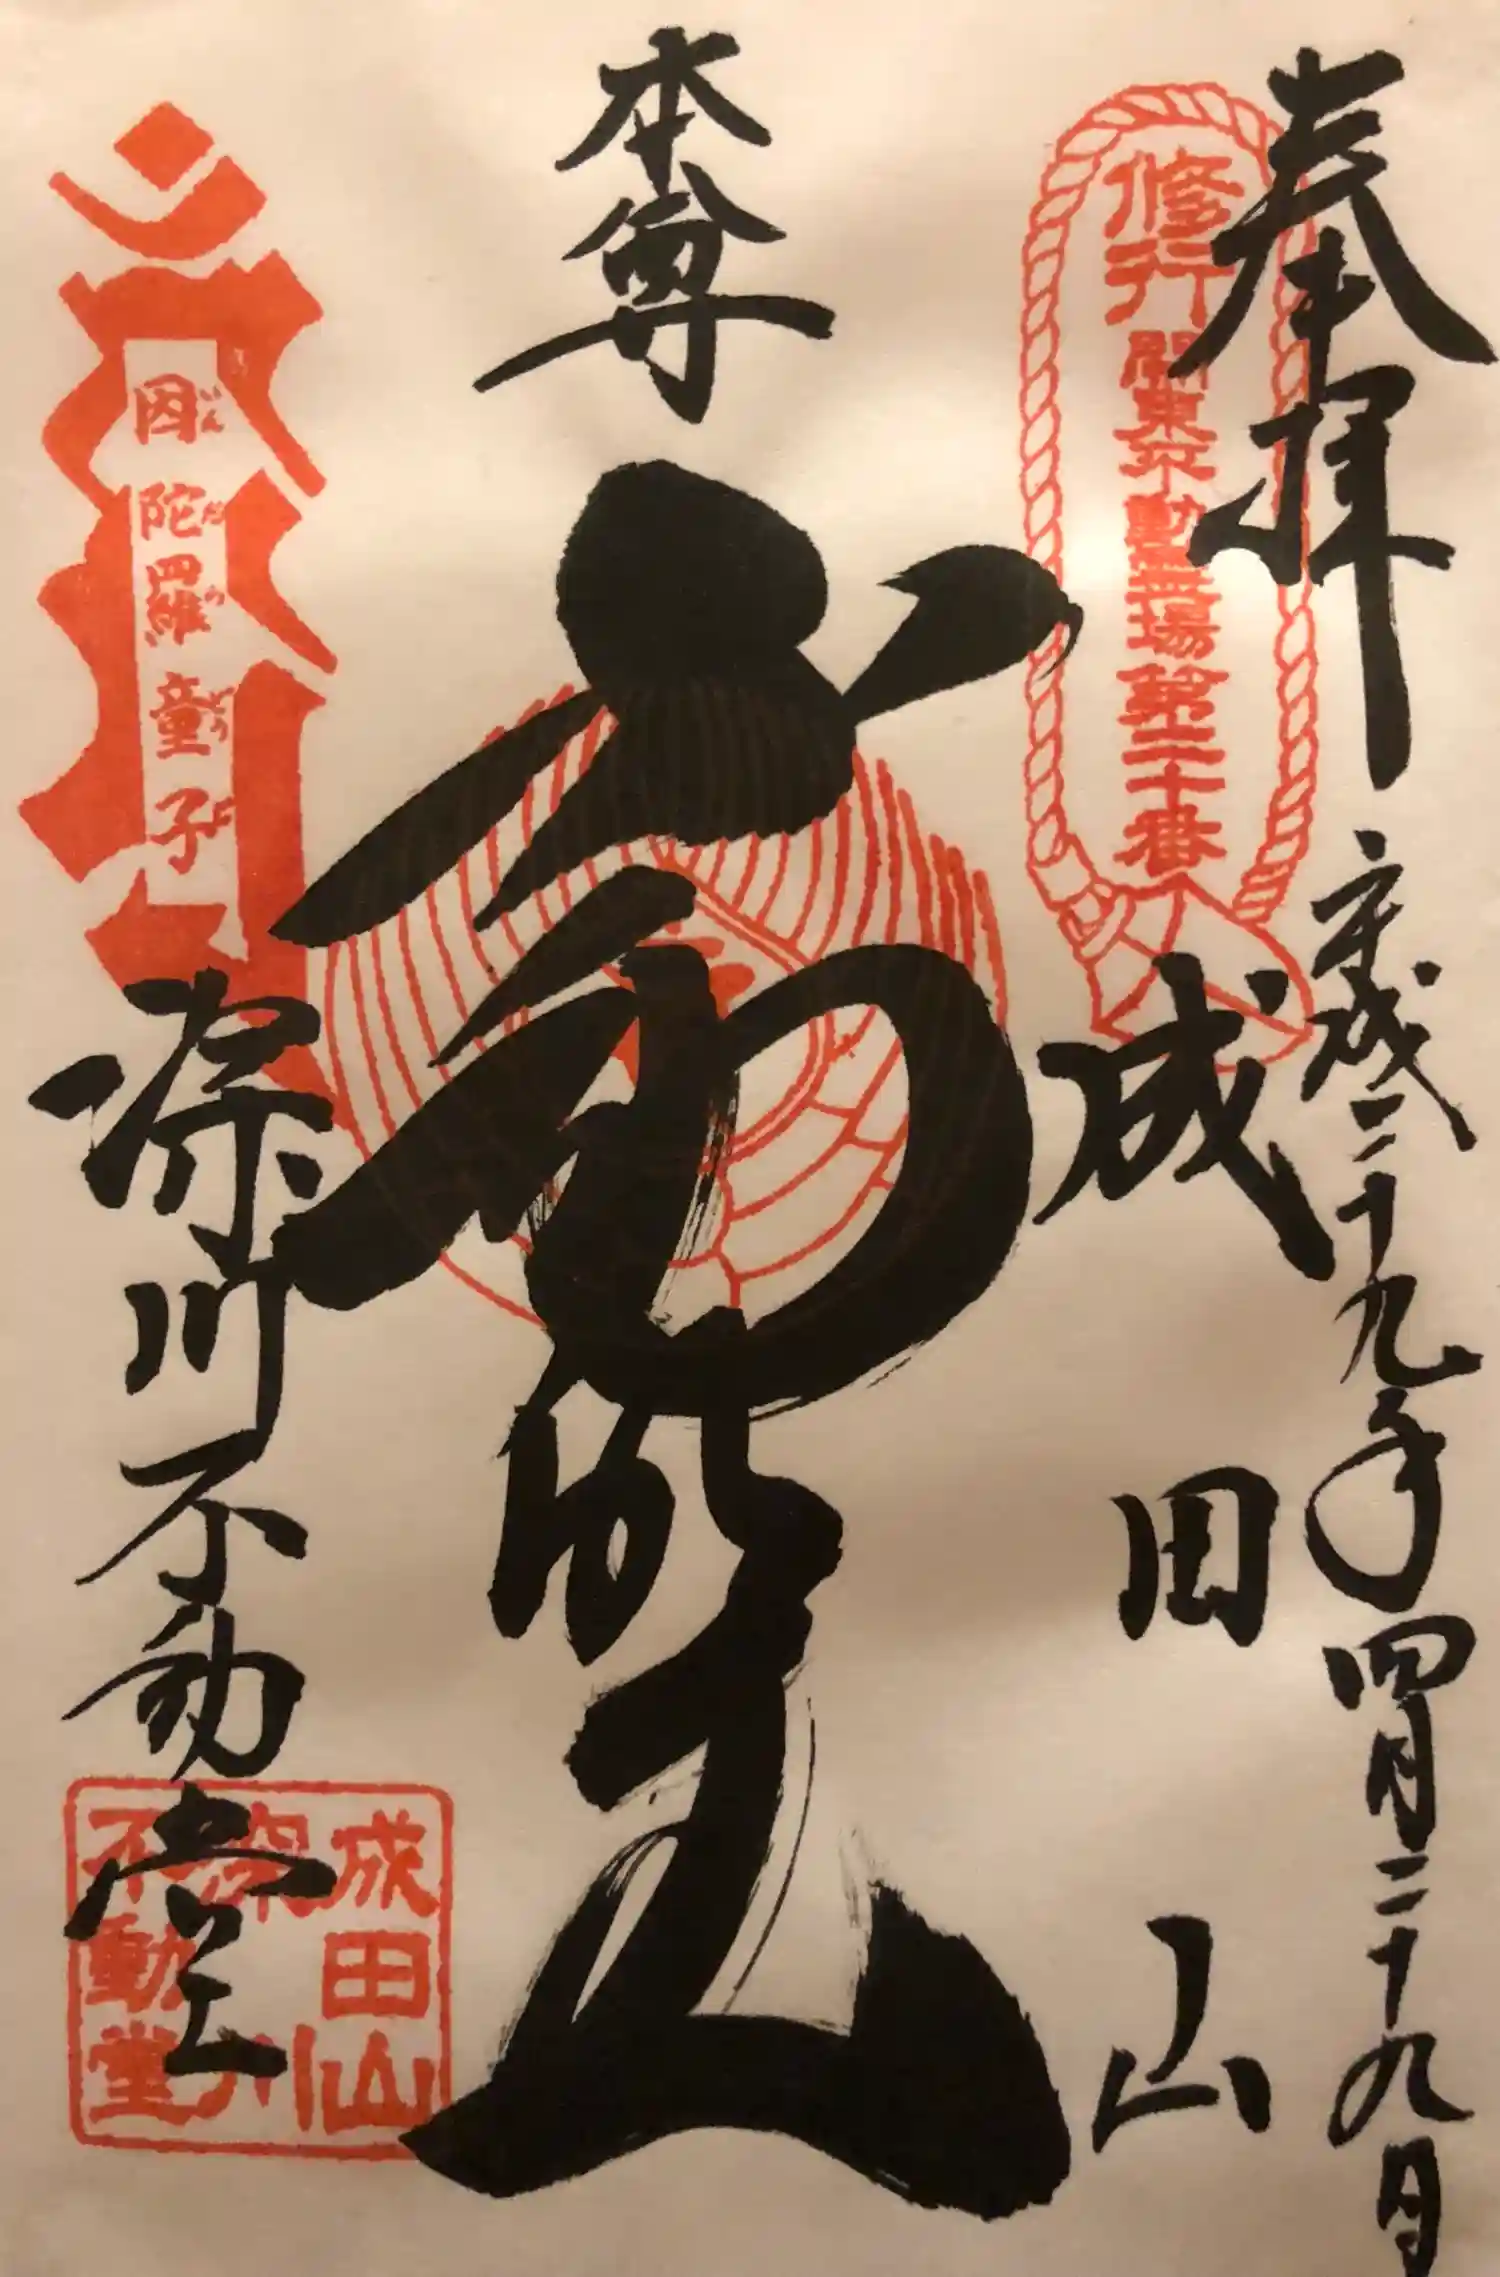 奉拝
平成二十九年四月二十九日
修行
関東不動霊場第二十番
成田山
本尊
不動明王
因陀羅童子
いんだらどうじ
深川不動堂
成田山
深川
不動堂